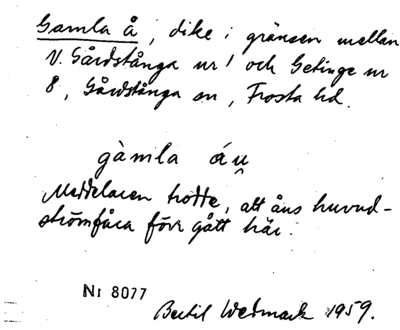 Gamla å, dike i gränsen mellan
V. Gårdstånga nr 1 och Getinge nr
8, Gårdstånga sn, Frosta hd.
gàmla áu̯
Meddelaren trodde, att åns huvud-
strömfåra förr gått här.
Nr 8077
Bertil Wedmark 1959.